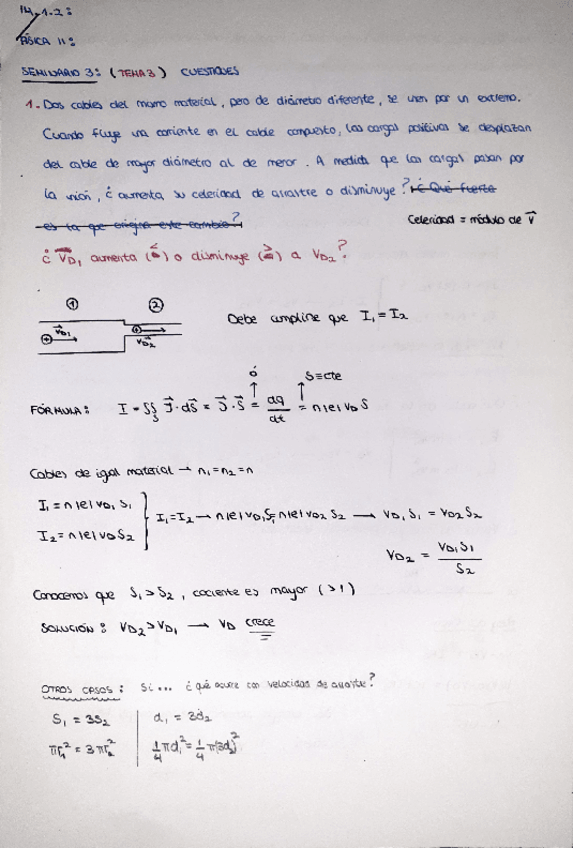 14.1.2:
FÍSICA II:
SEMINARIO 3: (TEMA 3) CUESTIONES
1.- Dos cables del mismo material, pero de diámetro diferente, se unen por un extremo.
Cuando fluye una corriente en el cable compuesto, las cargas positivas se desplazan
del cable de mayor diámetro al de menor. A medida que las cargas pasan por
la unión, ¿ aumenta su celeridad de arrastre o disminuye? ¿ Qué fuerza
es la que origina este cambio?
Celeridad = módulo de v⃗
¿ V⃗D₁ aumenta (<) o disminuye (>) a VD₂?
① ②
⊕ v⃗D₁ ⊕ v⃗D₂
Debe cumplirse que I₁ = I₂
ó S≡cte
FÓRMULA: I = ∬ₛ J⃗·dS⃗ = J⃗·S⃗ = dq/dt = n|e|vD S
Cables de igual material → n₁=n₂=n
I₁ = n|e|vD₁ S₁
I₂ = n|e|vD S₂
I₁=I₂ → n|e|vD₁S₁=n|e|vD₂ S₂ → VD₁ S₁ = VD₂ S₂
VD₂ = VD₁S₁/S₂
Conocemos que S₁ > S₂, cociente es mayor (>1)
SOLUCIÓN: VD₂ > VD₁ → VD crece
OTROS CASOS: Si... ¿ qué ocurre con velocidad de arrastre?
S₁ = 3S₂ d₁ = 3d₂
πr₁² = 3πr₂² ¼πd₁² = ¼π(3d₂)²